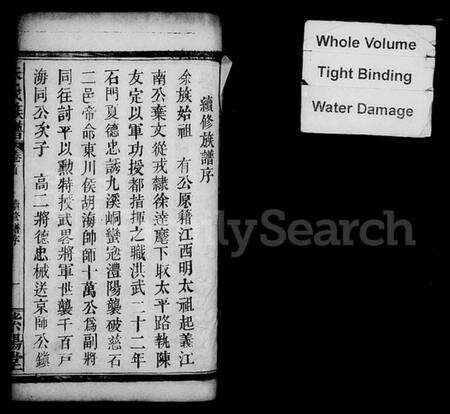 續修族譜序
余族始祖 有公原籍江西明太祖起義江
南公棄文從戎隸徐逹麾下取太平路執陳
友定以軍功授都指揮之職洪武二十二年
石門夏德忠誘九溪峒蠻宼澧陽襲破慈石
二邑帝命東川侯胡海帥師十萬公爲副將
同往討平以勲特授武畧將軍世襲千百戸
海同公次子 高二將德忠械送京師公鎭
族譜
續修譜序
一
紫陽堂
Whole Volume
Tight Binding
Water Damage
FamilySearch